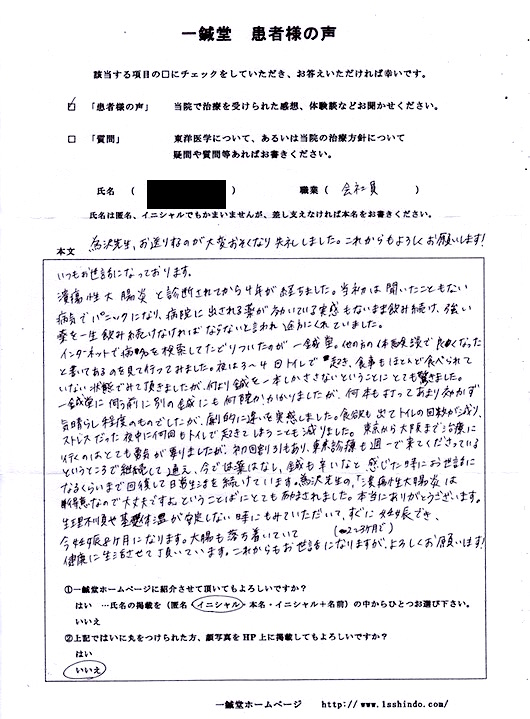 一鍼堂 患者様の声
該当する項目の□にチェックをしていただき、お答えいただければ幸いです。
☑ 「患者様の声」 当院で治療を受けられた感想、体験談などお聞かせください。
□ 「質問」 東洋医学について、あるいは当院の治療方針について
疑問や質問等あればお書きください。
氏名 ( ) 職業 ( 会社員 )
氏名は匿名、イニシャルでもかまいませんが、差し支えなければ本名をお書きください。
本文 為沢先生、お送りするのが大変おそくなり失礼しました。これからもよろしくお願いします!
いつもお世話になっております。
潰瘍性大腸炎と診断されてから4年が経ちました。当初は聞いたこともない
病気でパニックになり、病院に出される薬が効いている実感もないまま飲み続け、強い
薬を一生飲み続けなければならないと言われ途方にくれていました。
インターネットで病名を検索してたどりついたのが一鍼堂。他の方の体験談で良くなった
と書いてあるのを見て行ってみました。夜は3〜4回トイレで起き、食事もほとんど食べられて
いない状態でみて頂きましたが、何より鍼を一本しかささないということにとても驚きました。
一鍼堂に伺う前に別の鍼にも何院かかかりましたが、何本も打ってあまり効かず
気晴らし程度のものでしたが、劇的に違いを実感しました。食欲も出てトイレの回数が減り、
ストレスだった夜中に何回もトイレで起きてしまうことも減りました。東京から大阪まで治療に
行くのはとても費用が要りましたが、初回割引もあり、東京診療も週一で来てくださっている
というところで継続して通え、今では薬はなし、鍼も辛いなと感じた時にお世話に
なるくらいまで回復して日常生活を続けています。為沢先生の、「潰瘍性大腸炎は
得意なので大丈夫ですよ」ということばにとても励まされました。本当にありがとうございます。
生理不順や基礎体温が安定しない時にもみていただいて、すぐに妊娠でき、
(2〜3ヶ月で)
今妊娠8ヶ月になります。大腸も落ち着いていて
健康に生活させて頂いています。これからもお世話になりますが、よろしくお願いします!
①一鍼堂ホームページに紹介させて頂いてもよろしいですか?
はい …氏名の掲載を(匿名・イニシャル・本名・イニシャル+名前)の中からひとつお選び下さい。
いいえ
②上記ではいに丸をつけられた方、顔写真をHP上に掲載してもよろしいですか?
はい
いいえ
一鍼堂ホームページ http://www.1sshindo.com/